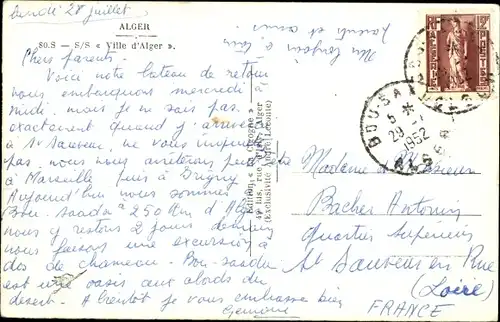 Lundi 28 juillet
ALGER
80.S — S/S « Ville d'Alger ».
Mon bonjour à tous
parents et amis
Chers parents.
Voici notre bateau de retour
nous embarquons mercredi à
midi, mais je ne sais pas
exactement quand j'arrive
à St Sauveur, ne vous inquiétez
pas, nous nous arrêtons
à Marseille puis à Grigny
Aujourd'hui nous sommes
Bou-saada à 250 km d'Alger
nous y restons 2 jours demain
nous faisons une excursion à
dos de chameau. Bou-saada
est une oasis aux abords du
desert. A bientôt je vous embrasse bien
Germaine
Edition
49 bis, rue Alger
(Exclusivité André Leconte)
ALGERIE
POSTES
BOU-SAADA
29-7
1952
ALGER
Madame et Monsieur
Bacher Antonin
Quartier Superieur
St Sauveur en Rue
(Loire)
FRANCE